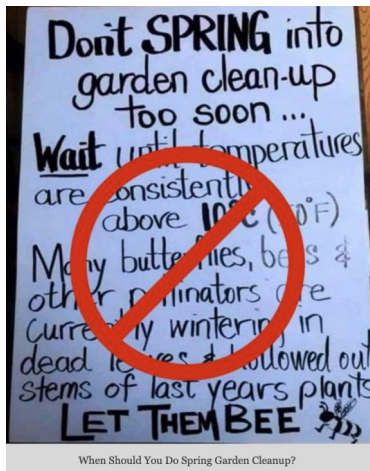 Don't SPRING into
garden clean-up
too soon ...
Wait until temperatures
are consistently
above 10°C (50°F)
Many butterflies, bees &
other pollinators are
Currently wintering in
dead leaves & hollowed out
stems of last years plants
LET THEM BEE
When Should You Do Spring Garden Cleanup?